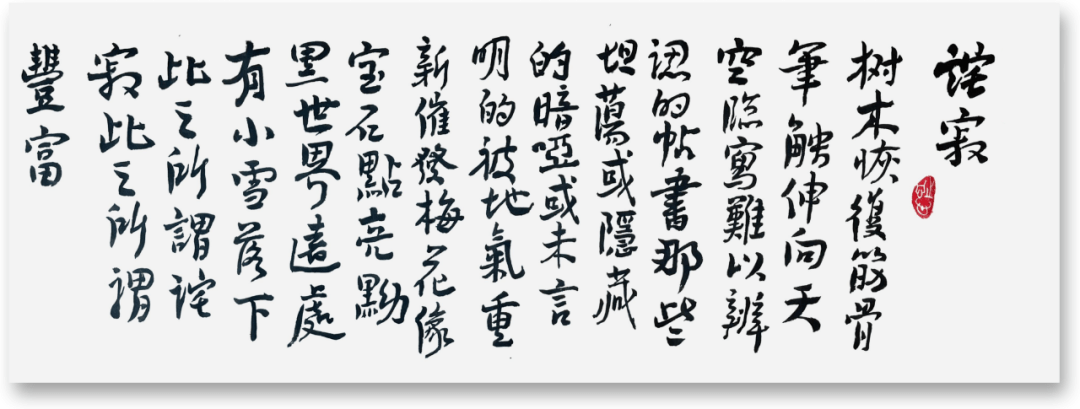 詫寂
树木恢復筋骨
筆触伸向天
空臨寫難以辨
認的帖書那些
坦蕩或隱藏
的暗啞或未言
明的被地氣重
新催發梅花像
宝石點亮黝
黑世界遠處
有小雪落下
此之所謂詫
寂此之所謂
豐富